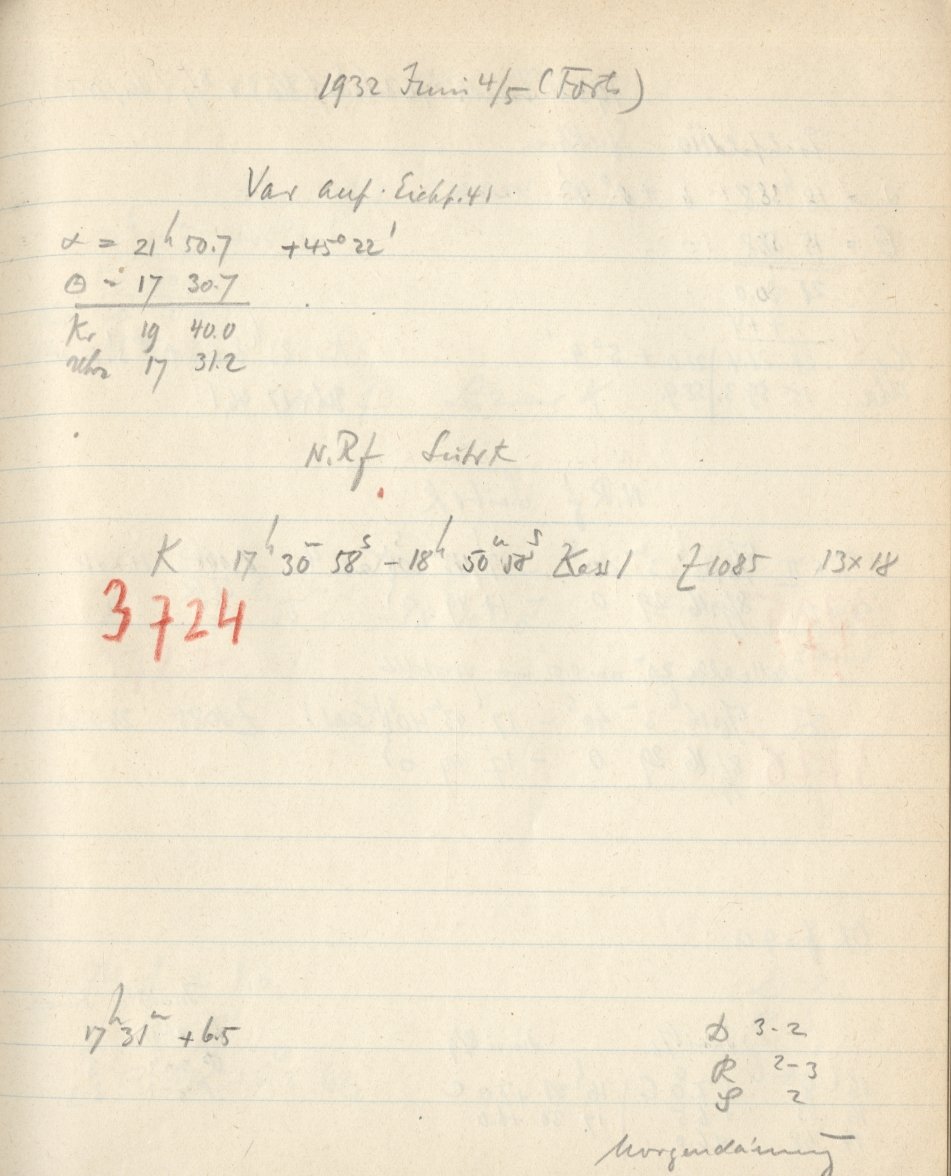 1932 Juni 4/5 (Forts)
Var auf Eichf. 41
α = 21h 50.7 +45° 22'
Θ = 17 30.7
Kr 19 40.0
Uhr 17 31.2
N.Rf
K 17h 30m 58s – 18h 50m 58s Kass 1 Z 1085 13x18
3724
17h 31m +6.5
D 3-2
R 2-3
S 2
Morgendämm